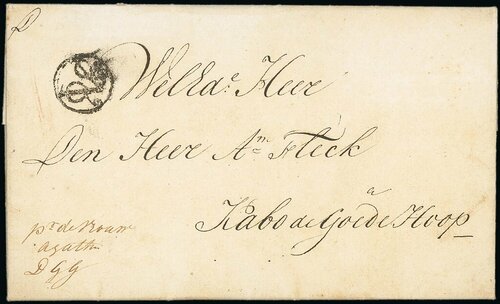 WelEd.e Heer
Den Heer Am Fleck
a
Kabo de Goede Hoop
pr de Vrouw
Agatha
D G G